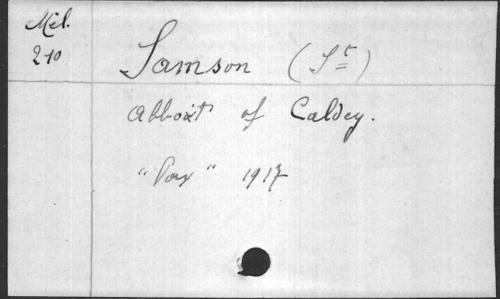 Mél.
210
Samson (St)
Abbot of Caldey.
"Pax" 1917